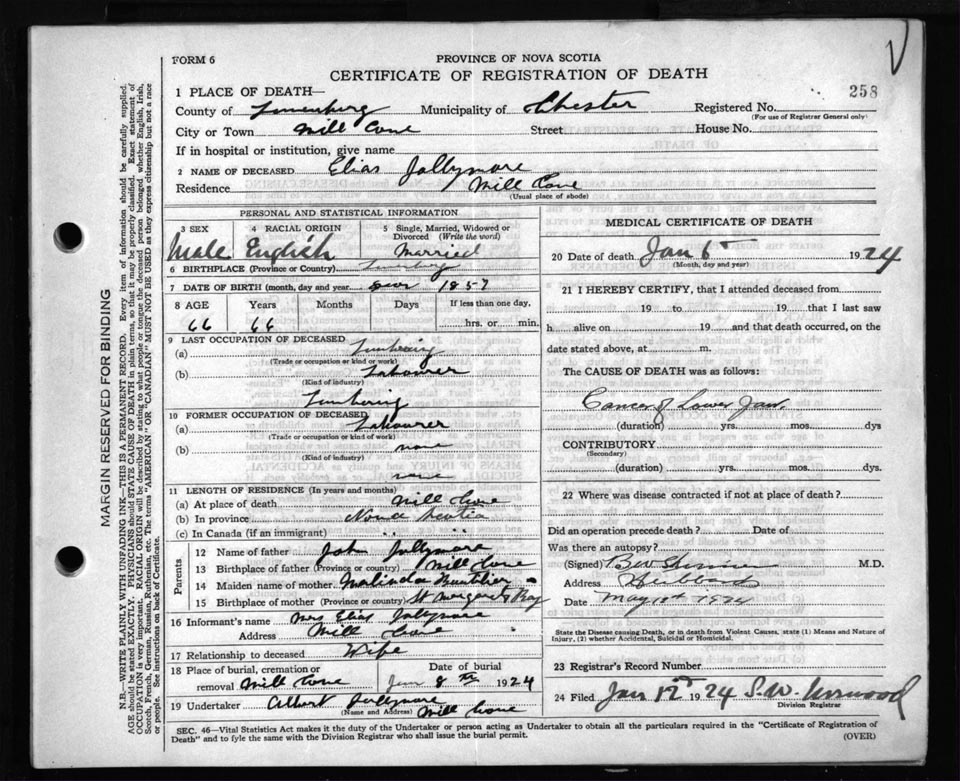 FORM 6
PROVINCE OF NOVA SCOTIA
CERTIFICATE OF REGISTRATION OF DEATH
258
1 PLACE OF DEATH—
County of Lunenburg Municipality of Chester Registered No.
(For use of Registrar General only)
City or Town Mill Cove Street House No.
If in hospital or institution, give name
2 NAME OF DECEASED Elias Jollymore
Residence Mill Cove
(Usual place of abode)
PERSONAL AND STATISTICAL INFORMATION
3 SEX 4 RACIAL ORIGIN 5 Single, Married, Widowed or Divorced (Write the word)
Male English Married
6 BIRTHPLACE (Province or Country)
7 DATE OF BIRTH (month, day and year) 1857
8 AGE Years Months Days If less than one day,
66 66 hrs. or min.
9 LAST OCCUPATION OF DECEASED
(a) Lumbering
(Trade or occupation or kind or work)
(b) Labourer
(Kind of industry)
Lumbering
10 FORMER OCCUPATION OF DECEASED
(a) Labourer
(Trade or occupation or kind of work)
(b) none
(Kind of industry)
none
11 LENGTH OF RESIDENCE (In years and months)
(a) At place of death Mill Cove
(b) In province Nova Scotia
(c) In Canada (if an immigrant)
Parents
12 Name of father John Jollymore
13 Birthplace of father (Province or Country) Mill Cove
14 Maiden name of mother Malinda
15 Birthplace of mother (Province or country) St Margarets Bay
16 Informant's name Mrs Elias Jollymore
Address Mill Cove
17 Relationship to deceased Wife
18 Place of burial, cremation or removal Mill Cove Date of burial Jan 8th 1924
19 Undertaker Albert Jollymore Mill Cove
(Name and Address)
MEDICAL CERTIFICATE OF DEATH
20 Date of death Jan 6 1924
(Month, day and year)
21 I HEREBY CERTIFY, that I attended deceased from
19 to 19 that I last saw
h alive on 19 and that death occurred, on the
date stated above, at m.
The CAUSE OF DEATH was as follows:
Cancer of Lower Jaw.
(duration) yrs. mos. dys
CONTRIBUTORY
(Secondary)
(duration) yrs. mos. dys.
22 Where was disease contracted if not at place of death?
Did an operation precede death? Date of
Was there an autopsy?
(Signed) M.D.
Address Hubbards
Date May 1924
State the Disease causing Death, or in death from Violent Causes, state (1) Means and Nature of
Injury, (2) whether Accidental, Suicidal or Homicidal.
23 Registrar's Record Number
24 Filed Jan 12 1924 S.W.
Division Registrar
SEC. 46—Vital Statistics Act makes it the duty of the Undertaker or person acting as Undertaker to obtain all the particulars required in the "Certificate of Registration of
Death" and to fyle the same with the Division Registrar who shall issue the burial permit.
(OVER)
MARGIN RESERVED FOR BINDING
N.B.—WRITE PLAINLY WITH UNFADING INK—THIS IS A PERMANENT RECORD. Every item of information should be carefully supplied.
AGE should be stated EXACTLY. PHYSICIANS should STATE CAUSE OF DEATH in plain terms, so that it may be properly classified. Exact statement of
OCCUPATION is very important. RACIAL ORIGIN will be described by stating to what people or tongue the deceased person belonged, whether English, Irish,
Scotch, French, German, Russian, Ruthenian, etc. The terms "AMERICAN" OR "CANADIAN" MUST NOT BE USED as they express citizenship but not a race
or people. See instructions on back of Certificate.